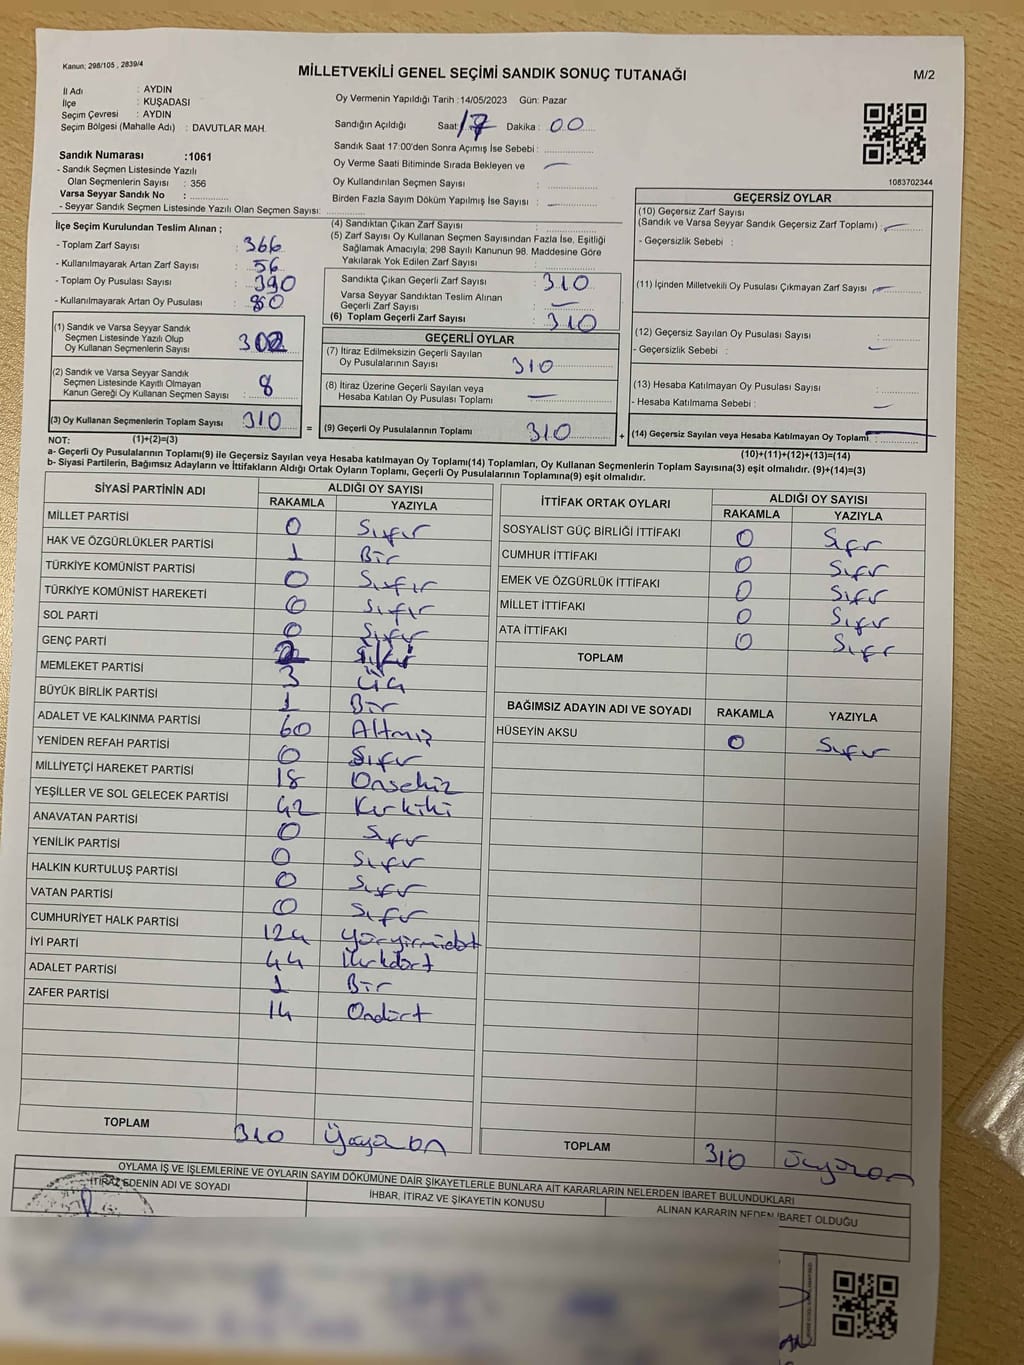 Kanun: 298/105 , 2839/4
MİLLETVEKİLİ GENEL SEÇİMİ SANDIK SONUÇ TUTANAĞI
M/2
İl Adı : AYDIN
İlçe : KUŞADASI
Seçim Çevresi : AYDIN
Seçim Bölgesi (Mahalle Adı) : DAVUTLAR MAH.
Oy Vermenin Yapıldığı Tarih :14/05/2023 Gün: Pazar
Sandığın Açıldığı Saat: 17 Dakika : 00
Sandık Saat 17:00'den Sonra Açımış İse Sebebi :
Oy Verme Saati Bitiminde Sırada Bekleyen ve –
Oy Kullandırılan Seçmen Sayısı :
Birden Fazla Sayım Döküm Yapılmış İse Sayısı : –
Sandık Numarası :1061
- Sandık Seçmen Listesinde Yazılı
Olan Seçmenlerin Sayısı : 356
Varsa Seyyar Sandık No :
- Seyyar Sandık Seçmen Listesinde Yazılı Olan Seçmen Sayısı:
1083702344
İlçe Seçim Kurulundan Teslim Alınan ;
- Toplam Zarf Sayısı : 366
- Kullanılmayarak Artan Zarf Sayısı : 56
- Toplam Oy Pusulası Sayısı : 390
- Kullanılmayarak Artan Oy Pusulası : 80
(1) Sandık ve Varsa Seyyar Sandık
Seçmen Listesinde Yazılı Olup
Oy Kullanan Seçmenlerin Sayısı : 302
(2) Sandık ve Varsa Seyyar Sandık
Seçmen Listesinde Kayıtlı Olmayan
Kanun Gereği Oy Kullanan Seçmen Sayısı : 8
(3) Oy Kullanan Seçmenlerin Toplam Sayısı : 310
(1)+(2)=(3)
(4) Sandıktan Çıkan Zarf Sayısı :
(5) Zarf Sayısı Oy Kullanan Seçmen Sayısından Fazla İse, Eşitliği
Sağlamak Amacıyla; 298 Sayılı Kanunun 98. Maddesine Göre
Yakılarak Yok Edilen Zarf Sayısı :
Sandıkta Çıkan Geçerli Zarf Sayısı : 310
Varsa Seyyar Sandıktan Teslim Alınan
Geçerli Zarf Sayısı : –
(6) Toplam Geçerli Zarf Sayısı : 310
GEÇERLİ OYLAR
(7) İtiraz Edilmeksizin Geçerli Sayılan
Oy Pusulalarının Sayısı : 310
(8) İtiraz Üzerine Geçerli Sayılan veya
Hesaba Katılan Oy Pusulası Toplamı : –
= (9) Geçerli Oy Pusulalarının Toplamı 310
GEÇERSİZ OYLAR
(10) Geçersiz Zarf Sayısı
(Sandık ve Varsa Seyyar Sandık Geçersiz Zarf Toplamı) : –
- Geçersizlik Sebebi :
(11) İçinden Milletvekili Oy Pusulası Çıkmayan Zarf Sayısı : –
(12) Geçersiz Sayılan Oy Pusulası Sayısı :
- Geçersizlik Sebebi : –
(13) Hesaba Katılmayan Oy Pusulası Sayısı :
- Hesaba Katılmama Sebebi : –
+ (14) Geçersiz Sayılan veya Hesaba Katılmayan Oy Toplamı : –
(10)+(11)+(12)+(13)=(14)
NOT:
a- Geçerli Oy Pusulalarının Toplamı(9) ile Geçersiz Sayılan veya Hesaba katılmayan Oy Toplamı(14) Toplamları, Oy Kullanan Seçmenlerin Toplam Sayısına(3) eşit olmalıdır. (9)+(14)=(3)
b- Siyasi Partilerin, Bağımsız Adayların ve İttifakların Aldığı Ortak Oyların Toplamı, Geçerli Oy Pusulalarının Toplamına(9) eşit olmalıdır.
SİYASİ PARTİNİN ADI ALDIĞI OY SAYISI
RAKAMLA YAZIYLA
MİLLET PARTİSİ 0 Sıfır
HAK VE ÖZGÜRLÜKLER PARTİSİ 1 Bir
TÜRKİYE KOMÜNİST PARTİSİ 0 Sıfır
TÜRKİYE KOMÜNİST HAREKETİ 0 Sıfır
SOL PARTİ 0 Sıfır
GENÇ PARTİ 2 İki
MEMLEKET PARTİSİ 3 Üç
BÜYÜK BİRLİK PARTİSİ 1 Bir
ADALET VE KALKINMA PARTİSİ 60 Altmış
YENİDEN REFAH PARTİSİ 0 Sıfır
MİLLİYETÇİ HAREKET PARTİSİ 18 Onsekiz
YEŞİLLER VE SOL GELECEK PARTİSİ 42 Kırkiki
ANAVATAN PARTİSİ 0 Sıfır
YENİLİK PARTİSİ 0 Sıfır
HALKIN KURTULUŞ PARTİSİ 0 Sıfır
VATAN PARTİSİ 0 Sıfır
CUMHURİYET HALK PARTİSİ 124 Yüzyirmidört
İYİ PARTİ 44 Kırkdört
ADALET PARTİSİ 1 Bir
ZAFER PARTİSİ 14 Ondört
TOPLAM 310 Üçyüzon
İTTİFAK ORTAK OYLARI ALDIĞI OY SAYISI
RAKAMLA YAZIYLA
SOSYALİST GÜÇ BİRLİĞİ İTTİFAKI 0 Sıfır
CUMHUR İTTİFAKI 0 Sıfır
EMEK VE ÖZGÜRLÜK İTTİFAKI 0 Sıfır
MİLLET İTTİFAKI 0 Sıfır
ATA İTTİFAKI 0 Sıfır
TOPLAM
BAĞIMSIZ ADAYIN ADI VE SOYADI RAKAMLA YAZIYLA
HÜSEYİN AKSU 0 Sıfır
TOPLAM 310 Üçyüzon
OYLAMA İŞ VE İŞLEMLERİNE VE OYLARIN SAYIM DÖKÜMÜNE DAİR ŞİKAYETLERLE BUNLARA AİT KARARLARIN NELERDEN İBARET BULUNDUKLARI
İTİRAZ EDENİN ADI VE SOYADI
İHBAR, İTİRAZ VE ŞİKAYETİN KONUSU
ALINAN KARARIN NEDEN İBARET OLDUĞU